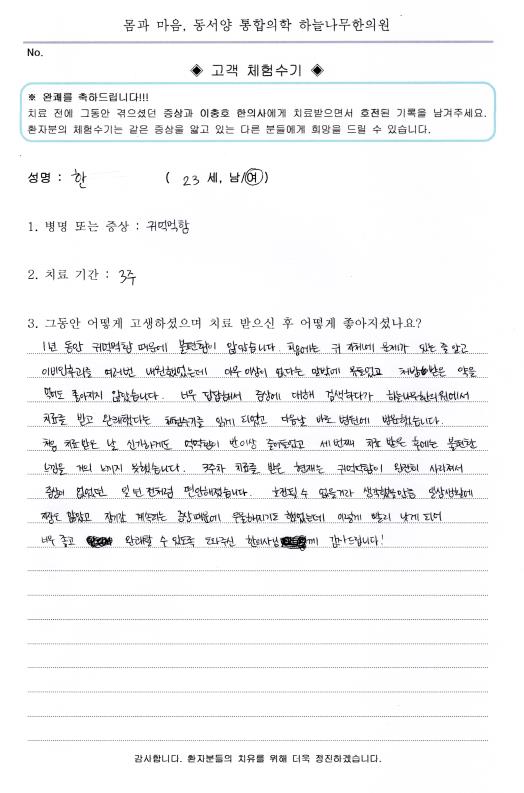 몸과 마음, 동서양 통합의학 하늘나무한의원
No.
◈ 고객 체험수기 ◈
※ 완쾌를 축하드립니다!!!
치료 전에 그동안 겪으셨던 증상과 이충호 한의사에게 치료받으면서 호전된 기록을 남겨주세요.
환자분의 체험수기는 같은 증상을 앓고 있는 다른 분들에게 희망을 드릴 수 있습니다.
성명 : 한 ( 23 세, 남/여)
1. 병명 또는 증상 : 귀먹먹함
2. 치료 기간 : 3주
3. 그동안 어떻게 고생하셨으며 치료 받으신 후 어떻게 좋아지셨나요?
1년 동안 귀먹먹함 때문에 불편함이 많았습니다. 처음에는 귀 자체에 문제가 있는 줄 알고
이비인후과를 여러번 내원했었는데 아무 이상이 없다는 말밖에 못들었고 처방받은 약을
먹어도 좋아지지 않았습니다. 너무 답답해서 증상에 대해 검색하다가 하늘나무한의원에서
치료를 받고 완쾌했다는 체험수기를 읽게 되었고 다음날 바로 병원에 방문했습니다.
처음 치료받은 날 신기하게도 먹먹함이 반이상 줄어들었고 세번째 치료 받은 후에는 불편한
느낌을 거의 느끼지 못했습니다. 3주차 치료를 받은 현재는 귀먹먹함이 완전히 사라져서
증상이 없었던 일년 전처럼 편안해졌습니다. 호전될 수 없을거라 생각했을만큼 일상생활에
짜증도 많았고 장기간 계속되는 증상때문에 우울해지기도 했었는데 이렇게 빨리 낫게 되어
너무 좋고 완쾌할 수 있도록 도와주신 한의사님께 감사드립니다!
감사합니다. 환자분들의 치유를 위해 더욱 정진하겠습니다.